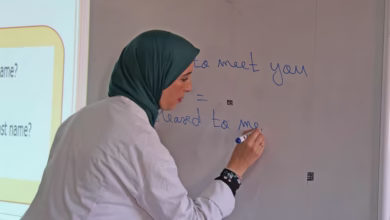 name?
st name?
to meet you
=
leased to me